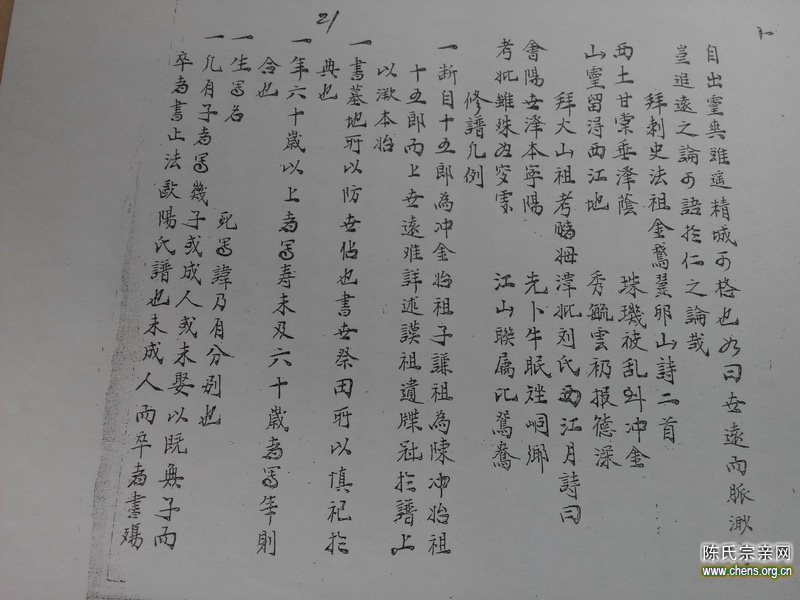 21
自出靈爽雖遥精城可格也如曰世遠而脈渺
豈追遠之論可語於仁之論哉
拜刺史法祖金鵞蛋卵山詩二首
西土甘棠垂澤蔭 珠璣被乱斜冲金
山靈留得西江地 秀毓雲礽报德深
拜大山祖考 姆 妣刘氏西江月詩曰
會陽世澤本寧陽 先卜牛眠 峒鄉
考妣雖殊 安 江山聯屬比鴛鴦
修譜凡例
一断自十五郎為冲金始祖子謙祖為陳冲始祖
十五郎而上世遠难詳述謨祖遺牒 於譜上
以溯本始
一書墓地所以防世佔也書世祭田所以慎祀於
典也
一年六十歲以上者寫寿未及六十歲者寫年則
合也
一生寫名 死寫諱乃有分别也
一凢有子者寫幾子或成人或未娶以既無子而
卒者書止法歐陽氏譜也未成人而卒者書殤
陈氏宗亲网
www.chens.org.cn